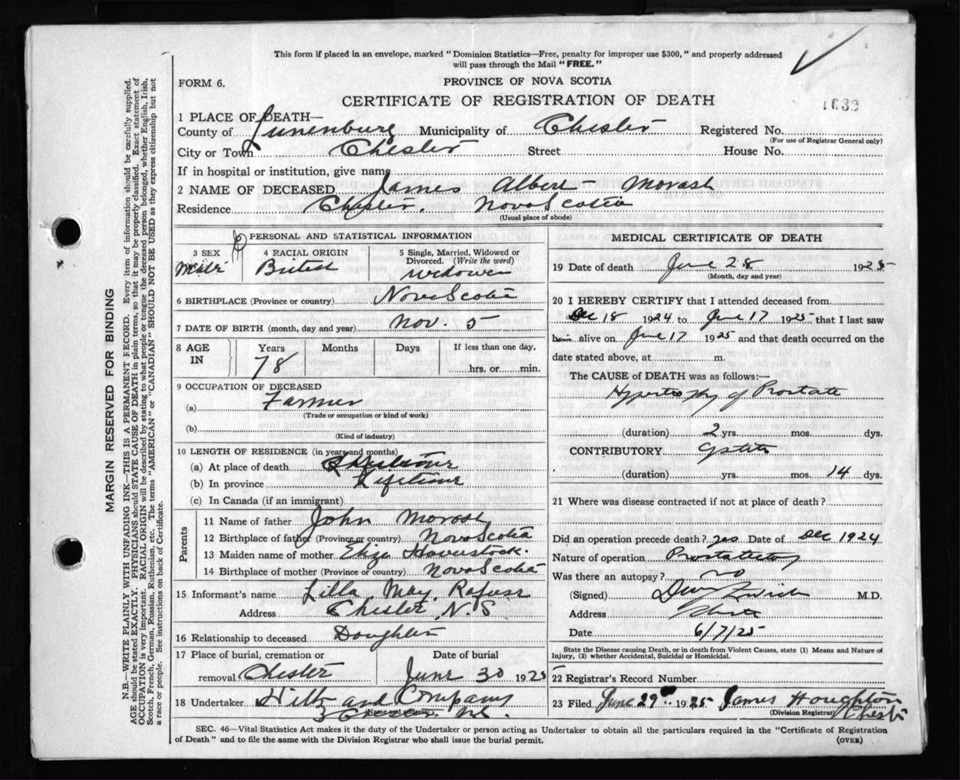 This form if placed in an envelope, marked "Dominion Statistics—Free, penalty for improper use $300," and properly addressed
will pass through the Mail "FREE."
FORM 6.
PROVINCE OF NOVA SCOTIA
CERTIFICATE OF REGISTRATION OF DEATH
1 PLACE OF DEATH—
County of Lunenburg Municipality of Chester Registered No.
(For use of Registrar General only)
City or Town Chester Street House No.
If in hospital or institution, give name
2 NAME OF DECEASED James Albert Morash
Residence Chester, Nova Scotia
(Usual place of abode)
PERSONAL AND STATISTICAL INFORMATION
3 SEX Male
4 RACIAL ORIGIN British
5 Single, Married, Widowed or Divorced. (Write the word) widower
6 BIRTHPLACE (Province or country) Nova Scotia
7 DATE OF BIRTH (month, day and year) Nov. 5
8 AGE IN Years 78 Months Days If less than one day, hrs. or min.
9 OCCUPATION OF DECEASED
(a) Farmer
(Trade or occupation or kind of work)
(b)
(Kind of industry)
10 LENGTH OF RESIDENCE (in years and months)
(a) At place of death Lifetime
(b) In province Lifetime
(c) In Canada (if an immigrant)
Parents
11 Name of father John Morash
12 Birthplace of father (Province or country) Nova Scotia
13 Maiden name of mother Eliza Haverstock
14 Birthplace of mother (Province or country) Nova Scotia
15 Informant's name Lilla May Rafuse
Address Chester, N.S
16 Relationship to deceased Daughter
17 Place of burial, cremation or removal Chester Date of burial June 30 1925
18 Undertaker Hiltz and Company
N.S.
MEDICAL CERTIFICATE OF DEATH
19 Date of death June 28 1925
(Month, day and year)
20 I HEREBY CERTIFY that I attended deceased from
Dec 18 1924 to June 17 1925 that I last saw
him alive on June 17 1925 and that death occurred on the
date stated above, at m.
The CAUSE of DEATH was as follows:—
Hypertrophy of Prostate
(duration) 2 yrs. mos. dys.
CONTRIBUTORY Cystitis
(duration) yrs. mos. 14 dys.
21 Where was disease contracted if not at place of death?
Did an operation precede death? yes Date of Dec 1924
Nature of operation Prostatectomy
Was there an autopsy? no
(Signed) M.D.
Address Chester
Date 6/7/25
State the Disease causing Death, or in death from Violent Causes, state (1) Means and Nature of
Injury, (2) whether Accidental, Suicidal or Homicidal.
22 Registrar's Record Number
23 Filed June 29th 1925 James Houghton
(Division Registrar) Chester
SEC. 46—Vital Statistics Act makes it the duty of the Undertaker or person acting as Undertaker to obtain all the particulars required in the "Certificate of Registration
of Death" and to file the same with the Division Registrar who shall issue the burial permit.
(OVER)
MARGIN RESERVED FOR BINDING
N.B.—WRITE PLAINLY WITH UNFADING INK—THIS IS A PERMANENT RECORD. Every item of information should be carefully supplied.
AGE should be stated EXACTLY. PHYSICIANS should STATE CAUSE OF DEATH in plain terms, so that it may be properly classified. Exact statement of
OCCUPATION is very important. RACIAL ORIGIN will be described by stating to what people or tongue the deceased person belonged, whether English, Irish,
Scotch, French, German, Russian, Ruthenian, etc. The terms "AMERICAN" or "CANADIAN" SHOULD NOT BE USED as they express citizenship but not
a race or people. See instructions on back of Certificate.